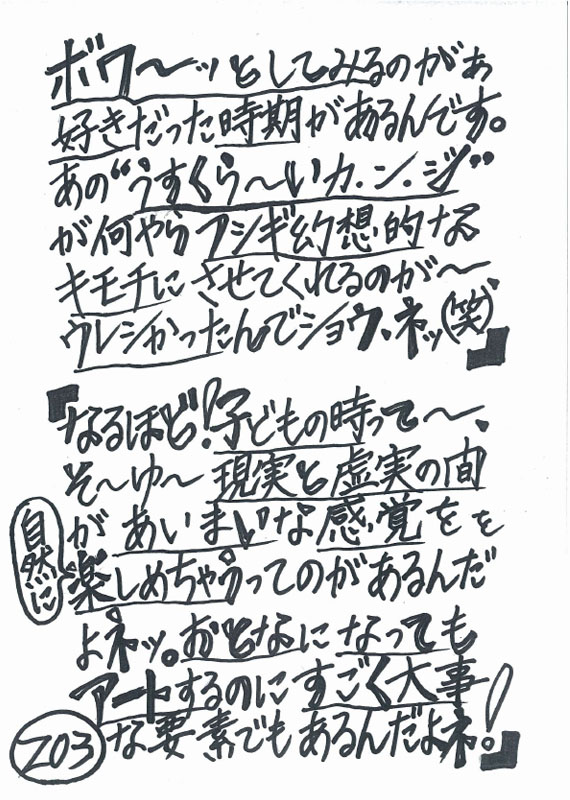 ボワ〜ッとしてみるのがぁ
好きだった時期があるんです。
あの“うすくら〜いカ.ン.ジ”
が何やらフシギ幻想的な
キモチにさせてくれるのが〜、
ウレシかったんでショウ、ネッ(笑)』
『なるほど!子どもの時って〜、
そ〜ゆ〜現実と虚実の間
があいまいな感覚をを
自然に
楽しめちゃうってのがあるんだ
よネッ。おとなになっても
アートするのにすごく大事
な要素でもあるんだよネ!』
203